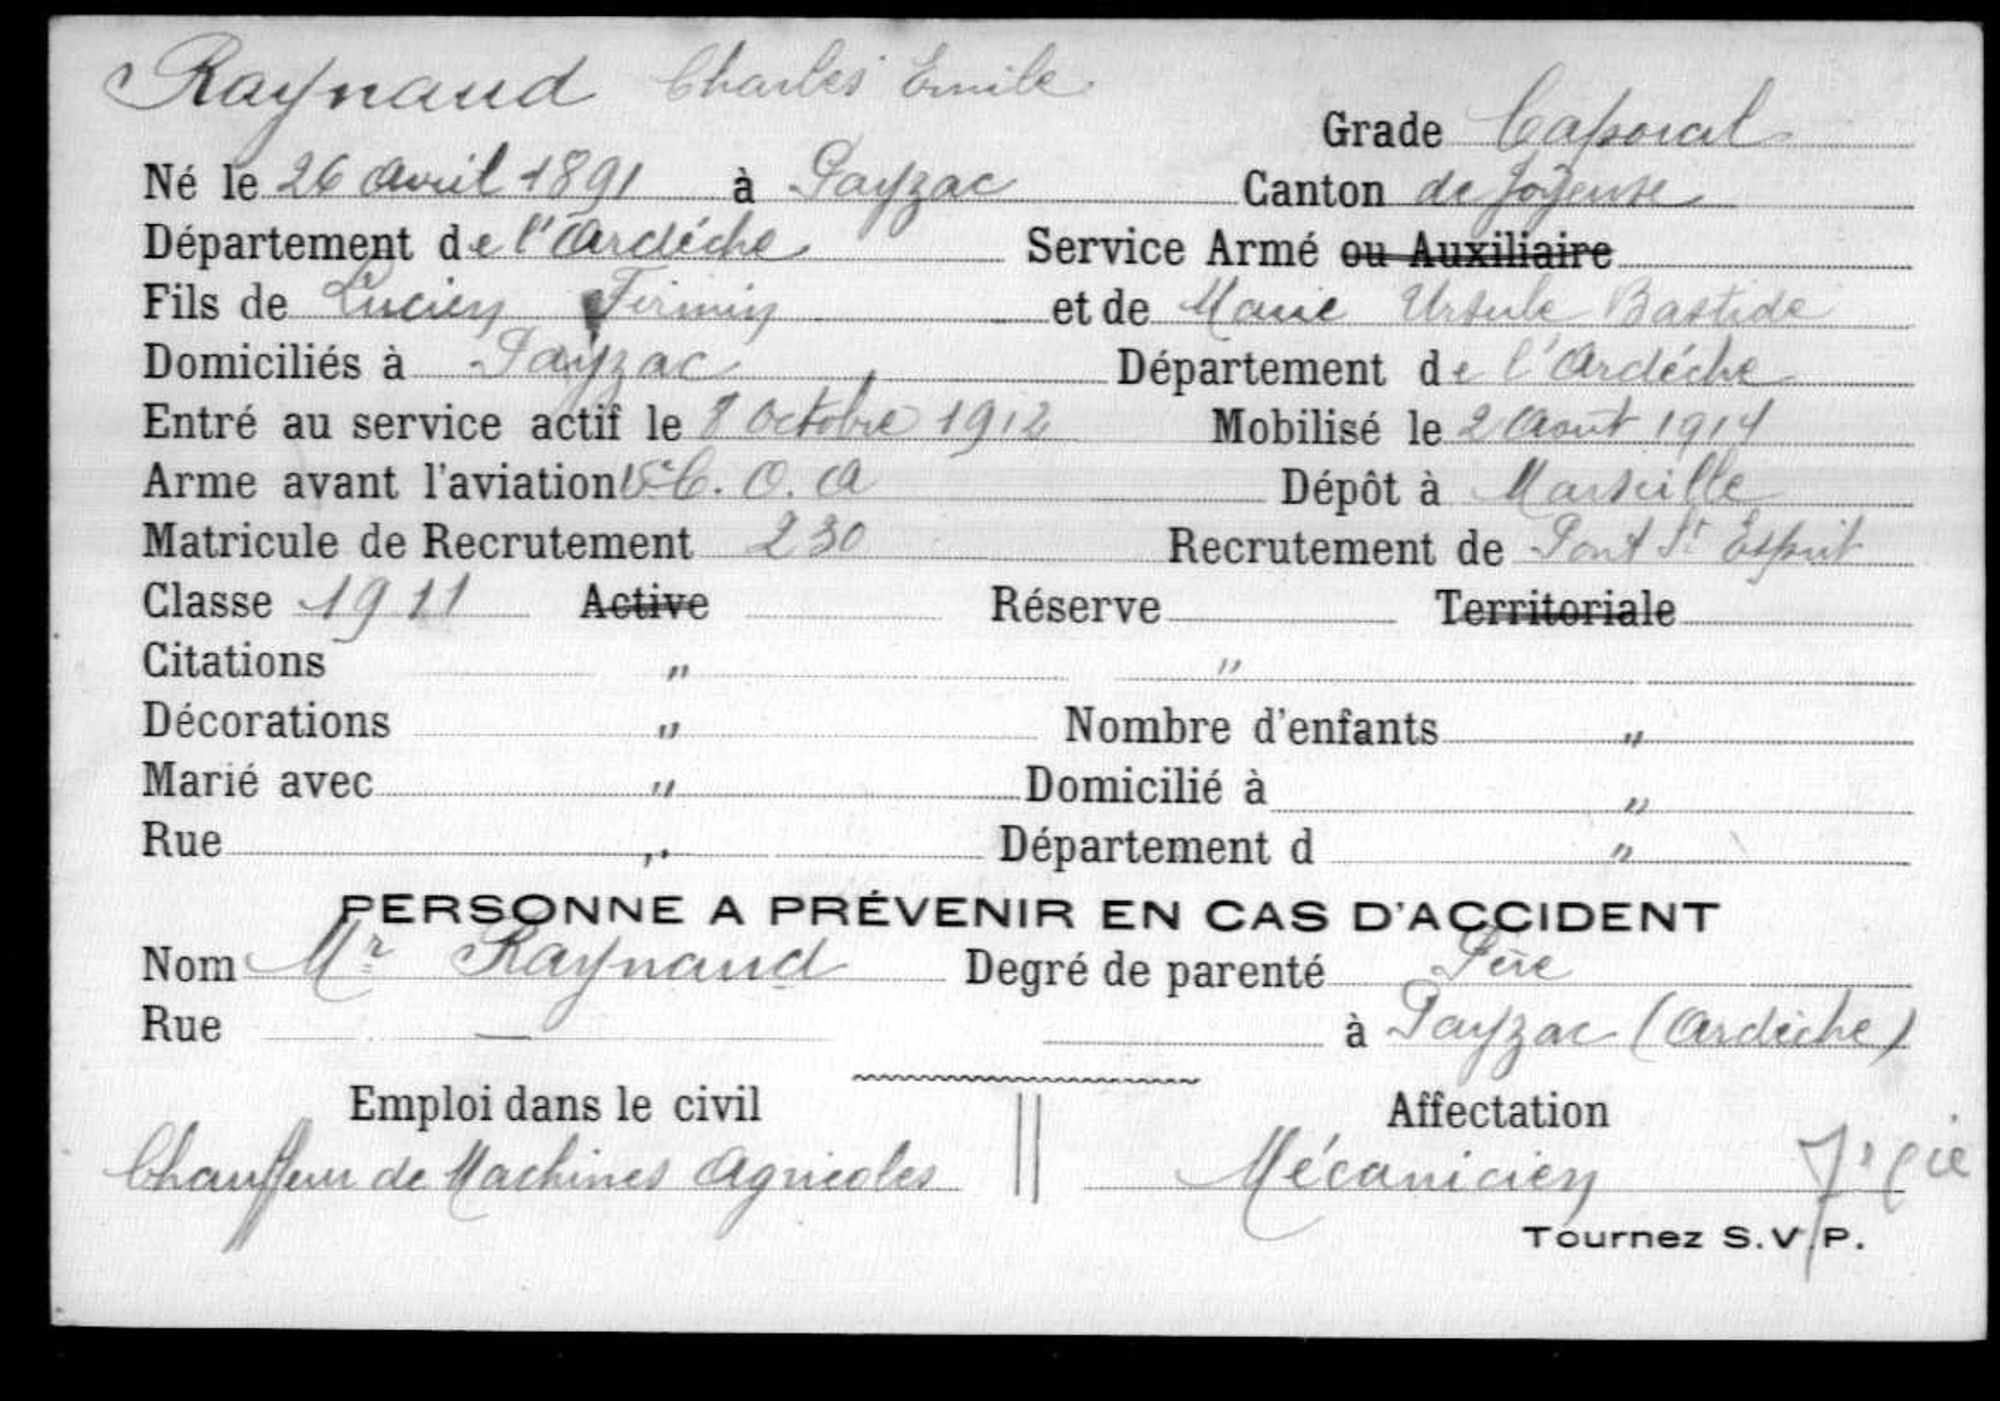 Raynaud Charles Emile
Grade Caporal
Né le 26 avril 1891 à Payzac Canton de Joyeuse
Département de l'Ardèche Service Armé ou Auxiliaire
Fils de Lucien Firmin et de Marie Ursule Bastide
Domiciliés à Payzac Département de l'Ardéche
Entré au service actif le 8 Octobre 1912 Mobilisé le 2 Août 1914
Arme avant l'aviation C. O. A Dépôt à Marseille
Matricule de Recrutement 230 Recrutement de Pont St Esprit
Classe 1911 Active Réserve Territoriale
Citations " "
Décorations " Nombre d'enfants "
Marié avec " Domicilié à "
Rue " Département d "
PERSONNE A PRÉVENIR EN CAS D'ACCIDENT
Nom Mr Raynaud Degré de parenté Père
Rue — à Payzac (Ardèche)
Emploi dans le civil Affectation
Chauffeur de Machines Agricoles Mécanicien Cie
Tournez S. V. P.